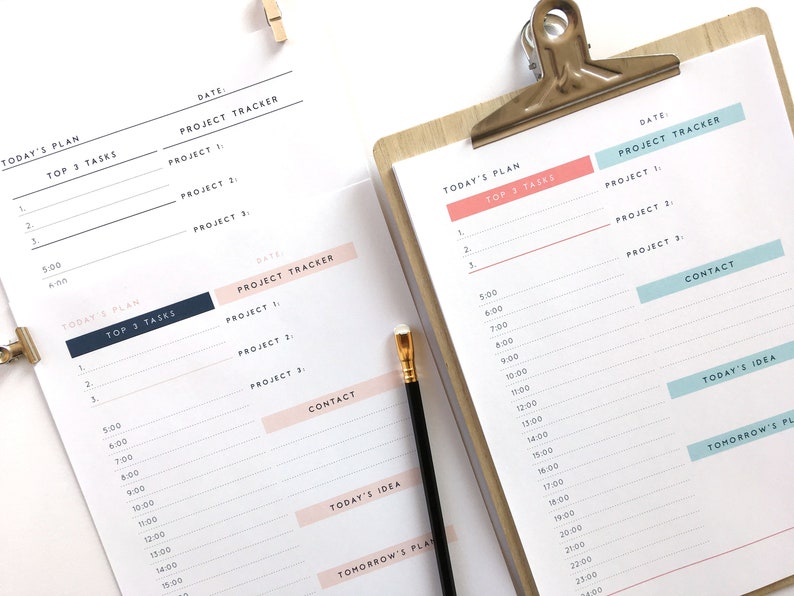 DATE:
TODAY'S PLAN
PROJECT TRACKER
TOP 3 TASKS
PROJECT 1:
1.
2.
PROJECT 2:
3.
PROJECT 3:
5:00
6:00
DATE:
TODAY'S PLAN
PROJECT TRACKER
TOP 3 TASKS
PROJECT 1:
1.
2.
PROJECT 2:
3.
PROJECT 3:
5:00
6:00
7:00
8:00
9:00
10:00
11:00
12:00
13:00
14:00
15:00
CONTACT
TODAY'S IDEA
TOMORROW'S PLAN
DATE:
TODAY'S PLAN
PROJECT TRACKER
TOP 3 TASKS
PROJECT 1:
1.
2.
PROJECT 2:
3.
PROJECT 3:
5:00
6:00
7:00
8:00
9:00
10:00
11:00
12:00
13:00
14:00
15:00
16:00
17:00
18:00
19:00
20:00
21:00
22:00
23:00
24:00
CONTACT
TODAY'S IDEA
TOMORROW'S PLA